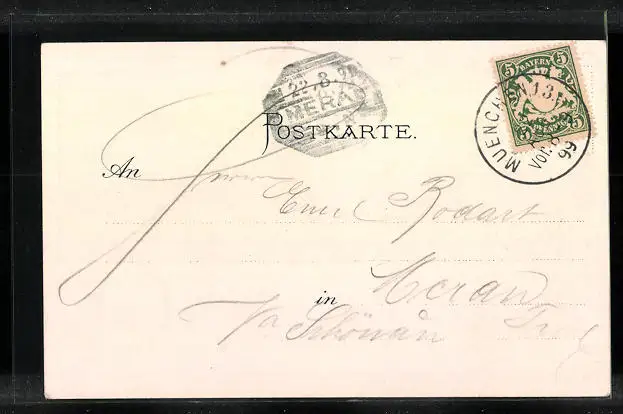 22.8.99
MERAN
POSTKARTE.
5 BAYERN 5
5 PFENNIG 5
MUENCHEN 13.
VOR. 8-9
99
An Herrn
Emil Rodart
in Meran
Villa Schönau Tir